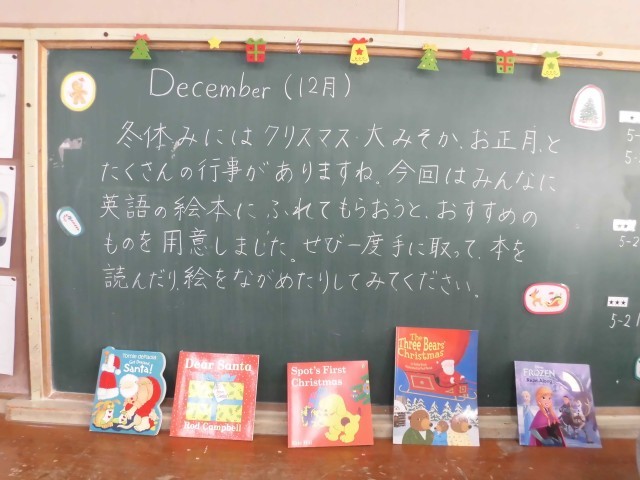 December (12月)
冬休みにはクリスマス・大みそか、お正月、と
たくさんの行事がありますね。今回はみんなに
英語の絵本に、ふれてもらおうと、おすすめの
ものを用意しました。ぜひ一度手に取って、本を
読んだり、絵をながめたりしてみてください。
5-2
5-2
Santa!
Dear Santa
Rod Campbell
Spot's First
Christmas
The
Three Bears'
Christmas
FROZEN